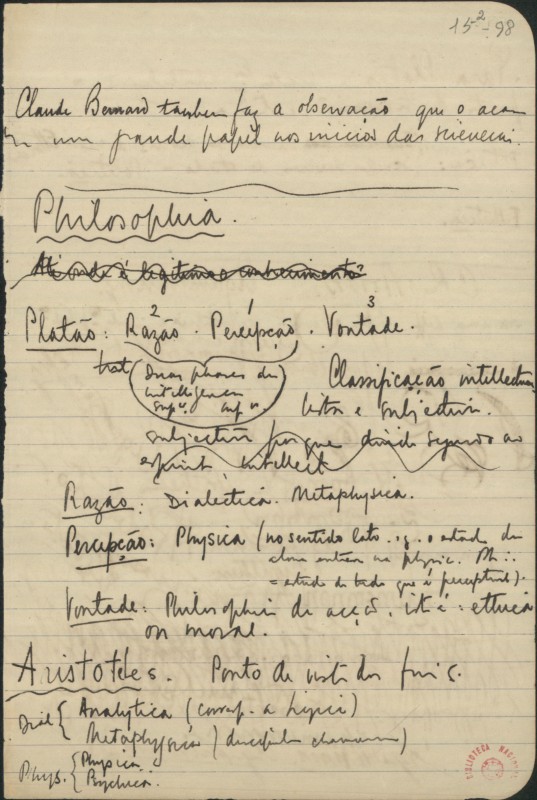 15-2-98
Claude Bernard tambem faz a observação que o acaso
tem um grande papel nos inicios das sciencias.
Philosophia.
Até onde é legitimo o conhecimento?
Platão: Razão. Percepção. Vontade.
2 1 3
(Duas phases da
intelligencia
sup. inf.
Classificação intellectua
lista e subjectiva.
subjectiva porque divide segundo ao
espirito, intellect
Razão: Dialectica. Metaphysica.
Percepção: Physica (no sentido lato. o estado da
alma entra na physic.
= estudo de tudo que é perceptivel).
Vontade: Philosophia de acção, ist é: ethica
ou moral.
Aristoteles. Ponto de vista dos fins.
Dial { Analytica (corresp. a Logica)
Metaphysica) discipulos chamaram)
Phys. { Physica
Psychica.
BIBLIOTECA NACIONAL